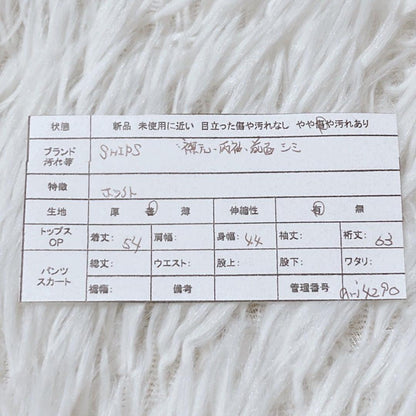 状態 新品 未使用に近い 目立った傷や汚れなし やや傷や汚れあり
ブランド 汚れ等 SHIPS 襟元・内側・前面 シミ
特徴 ニット
生地 厚 普 薄 伸縮性 有 無
トップス OP 着丈: 54 肩幅: 身幅: 44 袖丈: 裄丈: 63
パンツ スカート 総丈: ウエスト: 股上: 股下: ワタリ:
裾幅: 備考 管理番号 ari4290